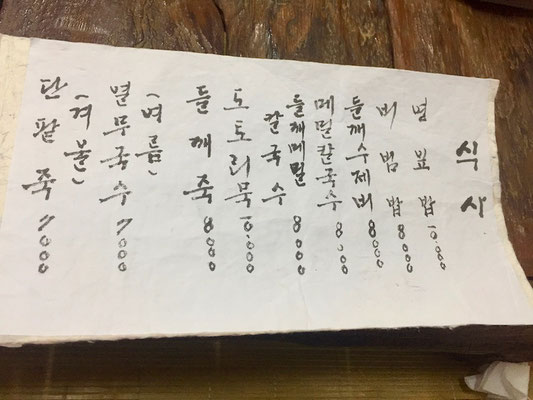 식사
연잎밥 10.000
비빔밥 8000
들깨수제비 8000
메밀칼국수 8000
들깨메밀
칼국수 8000
도토리묵 10.000
들깨죽 8000
(여름)
열무국수 7000
(겨울)
단팥죽 7000